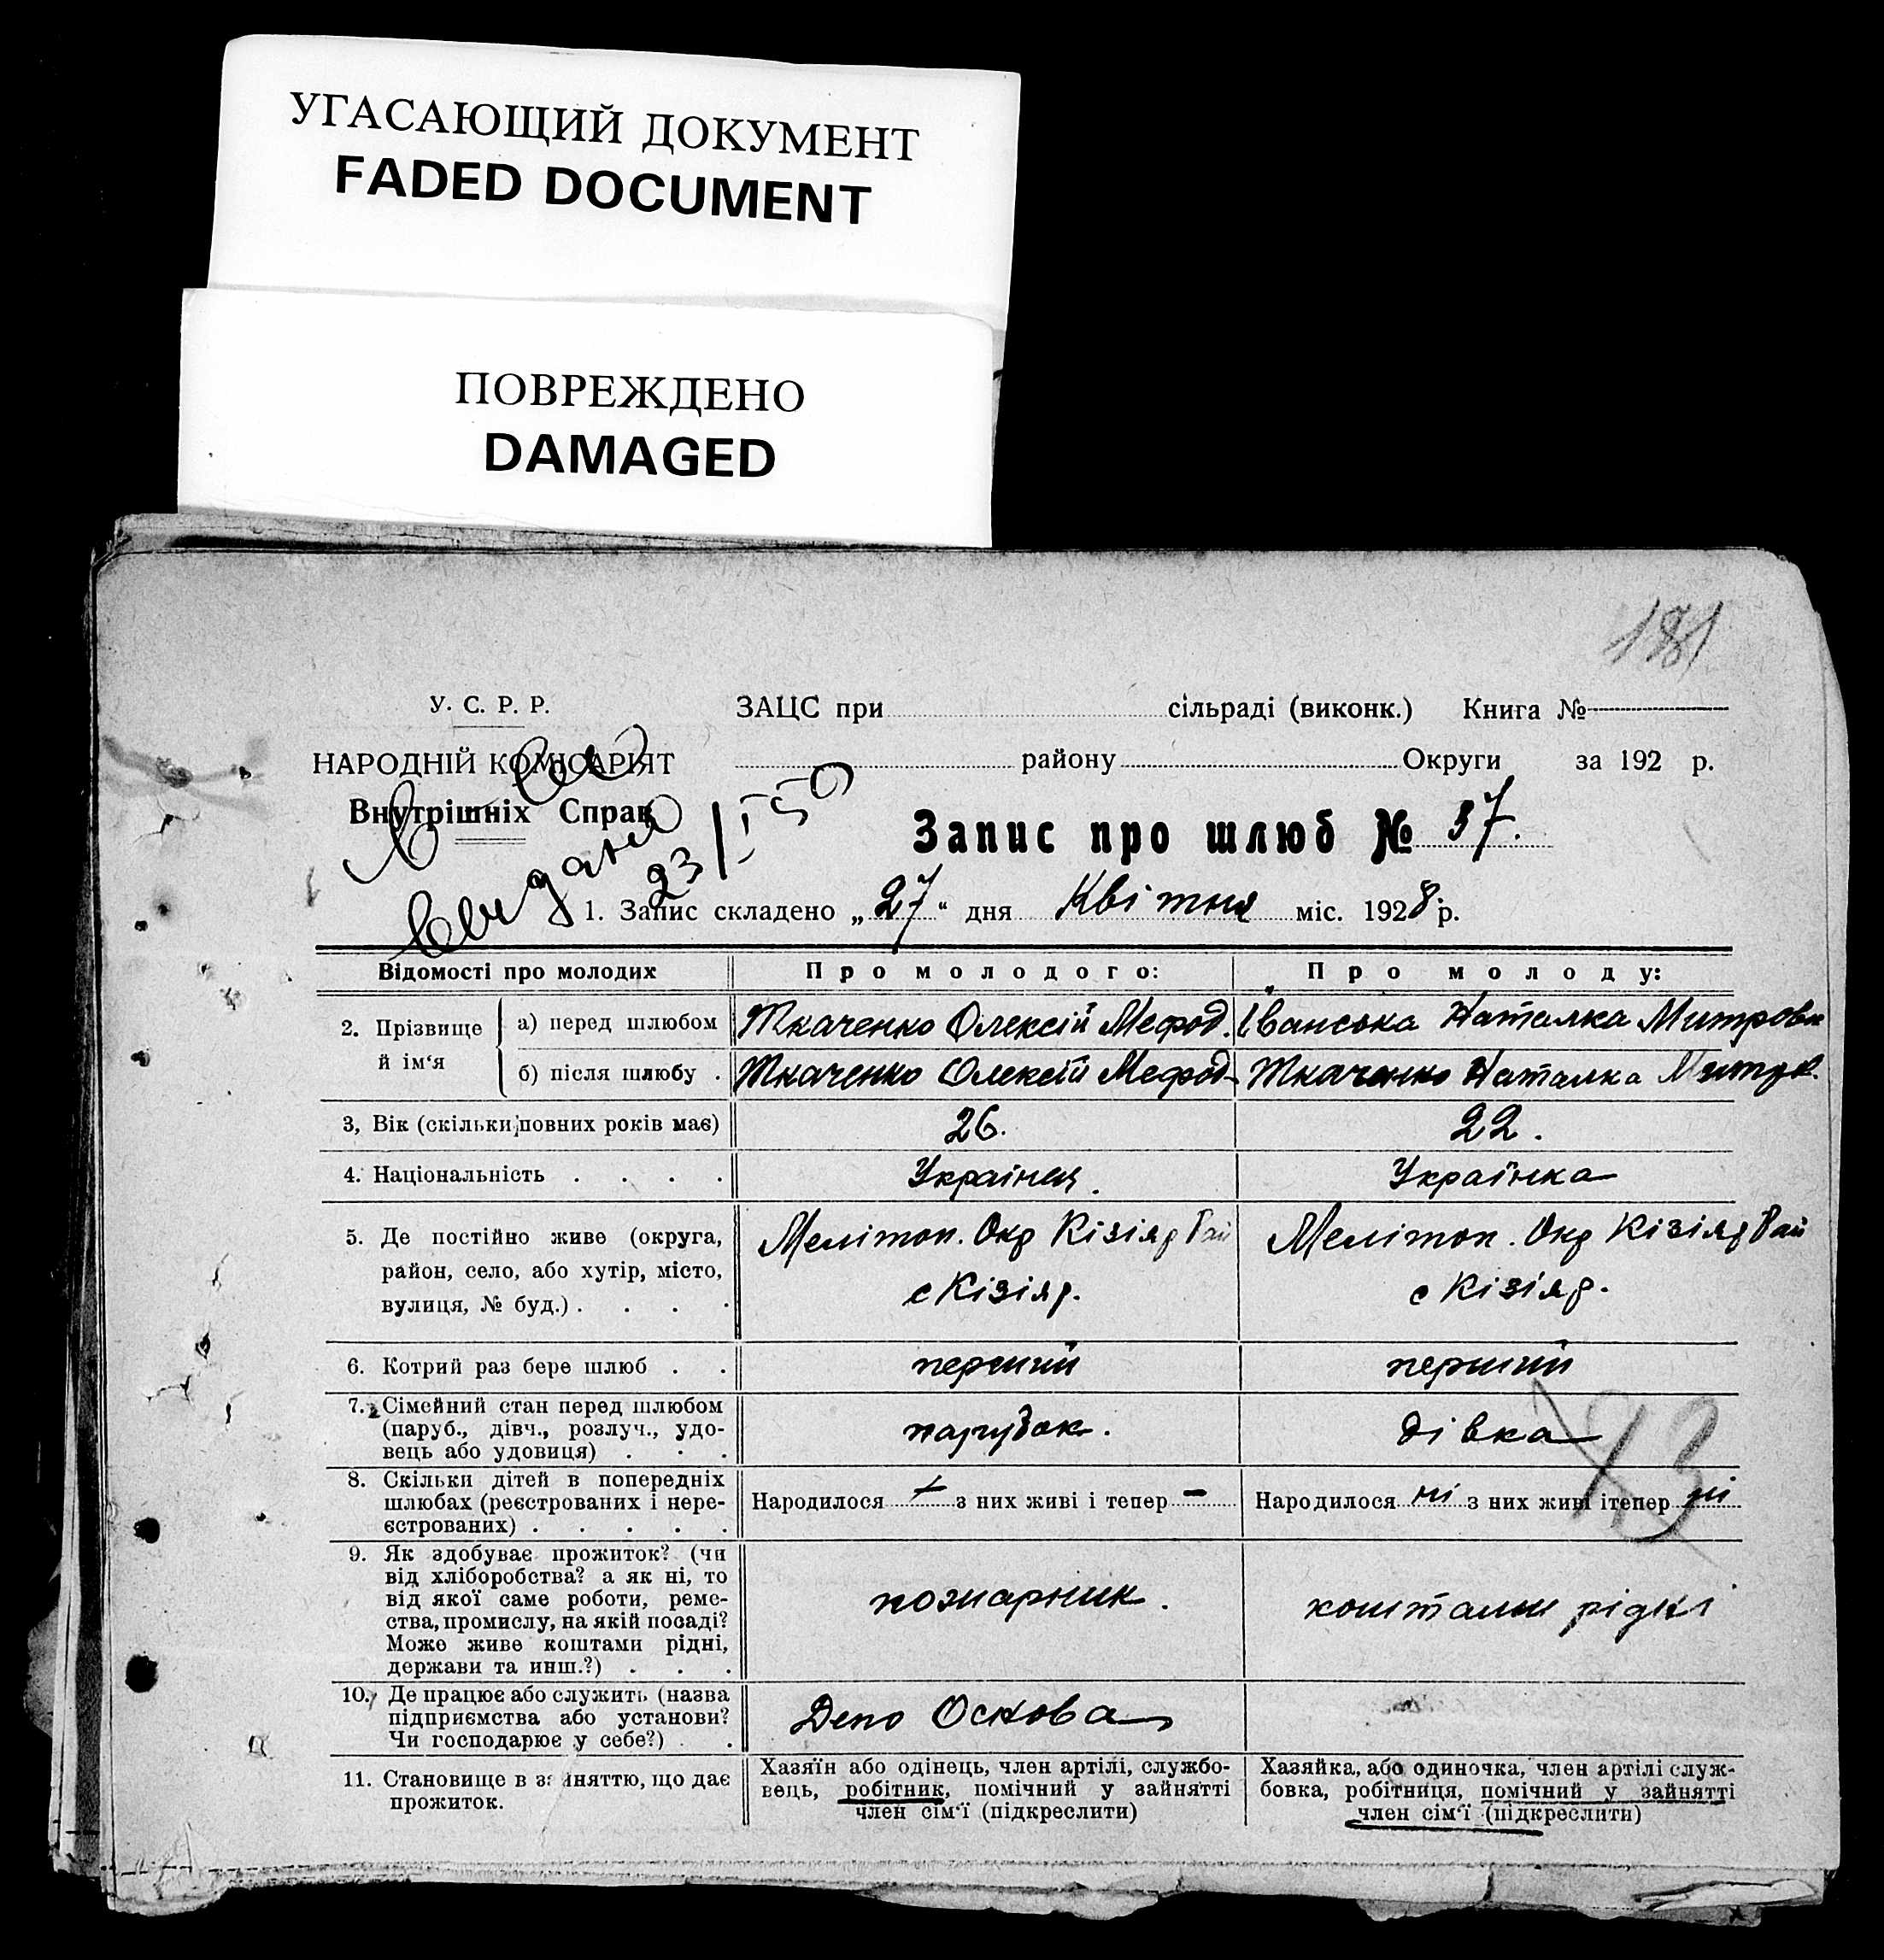 УГАСАЮЩИЙ ДОКУМЕНТ
FADED DOCUMENT
ПОВРЕЖДЕНО
DAMAGED
181
У. С. Р. Р.
ЗАЦС при сільраді (виконк.) Книга №
НАРОДНІЙ КОМІСАРІЯТ
району Округи за 192 р.
Внутрішніх Справ
23/I 50
Запис про шлюб № 37.
1. Запис складено „27“ дня Квітня міс. 1928 р.
Відомості про молодих
Про молодого:
Про молоду:
2. Прізвище й ім‘я
а) перед шлюбом
Ткаченко Олексій Мефод.
Іванська Наталка Митровн
б) після шлюбу .
Ткаченко Олексій Мефод
Ткаченко Наталка Митров.
3, Вік (скільки повних років має)
26.
22.
4. Національність . . . .
Українец.
Українка
5. Де постійно живе (округа,
район, село, або хутір, місто,
вулиця, № буд.) . . . .
Мелітоп. Окр Кізіяр Рай
с Кізіяр.
Мелітоп. Окр Кізіяр Рай
с Кізіяр.
6. Котрий раз бере шлюб . .
перший
перший
7. Сімейний стан перед шлюбом
(паруб., дівч., розлуч., удо-
вець або удовиця) . . .
парубок.
дівка
8. Скільки дітей в попередніх
шлюбах (реєстрованих і нере-
єстрованих) . . . . .
Народилося + з них живі і тепер –
Народилося ні з них живі ітепер ні
9. Як здобуває прожиток? (чи
від хліборобства? а як ні, то
від якої саме роботи, реме-
ства, промислу, на якій посаді?
Може живе коштами рідні,
держави та инш.?) . . .
пожарник.
коштами рідні
10. Де працює або служить (назва
підприємства або установи?
Чи господарює у себе?) . .
Депо Основа
11. Становище в заняттю, що дає
прожиток.
Хазяїн або одінець, член артілі, службо-
вець, робітник, помічний у зайнятті
член сім‘ї (підкреслити)
Хазяйка, або одиночка, член артілі служ-
бовка, робітниця, помічний у зайнятті
член сім‘ї (підкреслити)